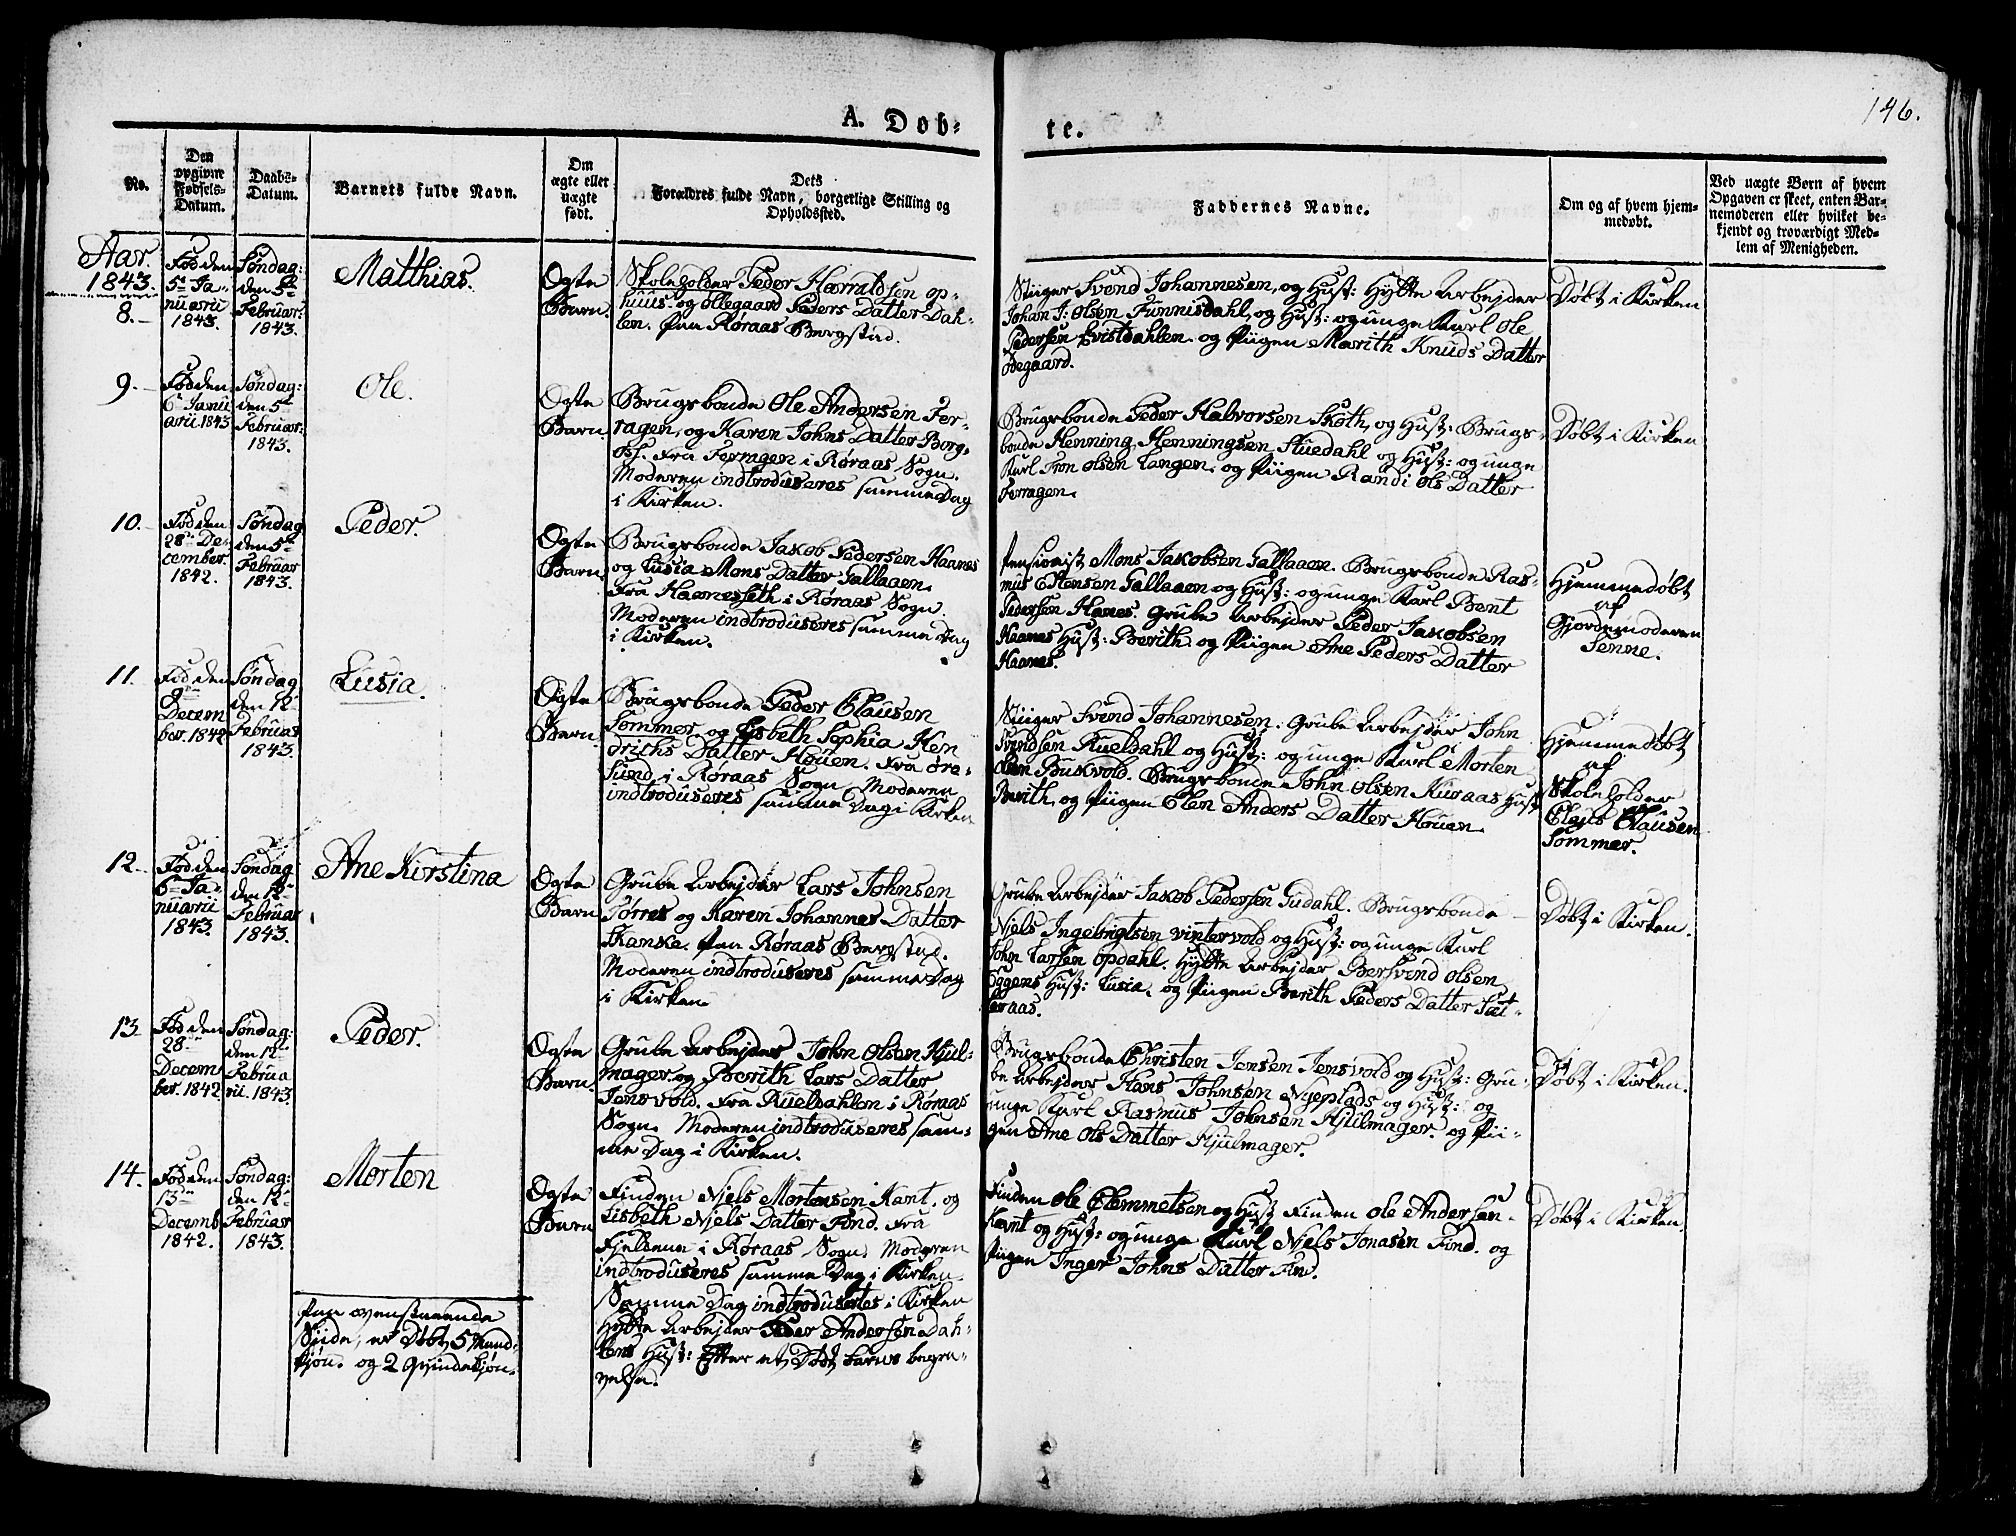 146.
A. Døb-
te.
No.
Den
opgivne
Fødsels-
Datum.
Daabs-
Datum.
Barnets fulde Navn.
Om
ægte eller
uægte
født.
Dets
Forældres fulde Navn, borgerlige Stilling og
Opholdssted.
Faddernes Navne.
Om og af hvem hjem-
medøbt.
Ved uægte Børn af hvem
Opgaven er skeet, enten Bar-
nemoderen eller hvilket be-
kjendt og troværdigt Med-
lem af Menigheden.
Aar.
1843.
8.
Fød den
5te Ja-
nuarii
1843.
Søndag:
den 5te
Februar:
1843.
Matthias.
Ægte
Barn.
Skoleholder Peder Harraldsen op-
huus. og Ollegaard Peders Datter Dah-
len. Paa Røraas Bergstad.
Stiiger Svend Johannesen, og Hust: Hytte Arbejder
Johan J: Olsen Funnisdahl, og Hust: og unge Karl Ole
Pedersen Evistdahlen. og Piigen Marith Knuds Datter
Ødegaard.
Døbt i Kirken
9.
Fød den
6te Janu
arii. 1843
Søndag:
den 5te
Februar:
1843.
Ole.
Ægte
Barn.
Brugsbonde Ole Andersen Fer-
ragen, og Karen Johns Datter Borg-
os. Fra Ferragen i Røraas Sogn.
Moderen indtroduseres samme Dag
i Kirken.
Brugsbonde Peder Halvorsen Skoth, og Hust: Brugs-
bonde Henning Henningsen Stuedahl og Hust: og unge
Karl Iver Olsen Langen. og Piigen Randi Ols Datter
Ferragen.
Døbt i Kirken
10.
Fød den
28de De-
cember.
1842.
Søndag
den 5te
Februar
1843.
Peder.
Ægte
Barn.
Brugsbonde Jakob Pedersen Haanes
og Lusia Mons Datter Gallaaen.
Fra Haanesseth i Røraas Sogn.
Moderen indtroduseres samme Dag
i Kirken.
Pensionist Mons Jakobsen Gallaaen. Brugsbonde Ras-
mus Estensen Gallaaen og Hust: og unge Karl Bent
Pedersen Hanes. Grube Arbejder Peder Jakobsen
Haanes Hust: Berith. og Piigen Ane Peders Datter
Haanes.
Hjemmedøbt
af
Gjordemoderen
Senne.
11.
Fød den
9de
Decem
ber. 1842
Søndag
den 12te
Februar
1843.
Lusia.
Ægte
Barn.
Brugsbonde Peder Clausen
Sommer. og Lisbeth Sophia Hen
driths Datter Høuen. Fra Øre-
sund i Røraas Sogn. Moderen
indtroduseres samme Dag i Kirken
Stiiger Svend Johannesen. Grube Arbejder John
Svendsen Rueldahl og Hust: og unge Karl Morten
Olsen Bukvold. Brugsbonde John Olsen Kuraas Hust
Berith, og Piigen Elen Anders Datter Høuen.
Hjemmedøbt
af
Skoleholder
Claus Clausen
Sommer.
12.
Fød den
6te Ja-
nuarii
1843.
Søndag
den 12te
Februar
1843.
Ane Kirstina
Ægte
Barn
Grube Arbejder Lars Johnsen
Tørres og Karen Johannes Datter
Skanke. Paa Røraas Bergstad.
Moderen indtroduseres samme Dag
i Kirken
Grube Arbejder Jakob Pedersen Gudahl. Brugsbonde
Niels Ingebrigtsen Vintervold og Hust: og unge Karl
John Larsen Opdahl. Hytte Arbejder Bersvend Olsen
Eggens Hust: Lusia. og Piigen Berith Peders Datter Sæt-
eraas.
Døbt i Kirken.
13
Fød den
28de
Decem
ber. 1842
Søndag:
den 12te
Februa
rii. 1843.
Peder.
Ægte
Barn.
Grube Arbejder John Olsen Hjul-
mager. og Berith Lars Datter
Jensvold. Fra Rueldahlen i Røraas
Sogn. Moderen indtroduseres sam-
me Dag i Kirken.
Brugsbonde Christen Jensen Jensvold og Hust: Gru-
be Arbejder Hans Johnsen Nyeplads og Hust: og
unge Karl Rasmus Johnsen Hjulmager. og Pii-
gen Ane Ols Datter Hjulmager.
Døbt i Kirken.
14.
Fød den
13de
Decemb
1842.
Søndag:
den 12te
Februar
1843.
Morten
Ægte
Barn
Finden Niels Mortensen Kant. og
Lisbeth Niels Datter Find. Fra
Fjeldene i Røraas Sogn. Moderen
indtroduseres samme Dag i Kirken.
Samme Dag indtroduseртes i Kirken
Hytte Arbejder Peder Andersen Dah-
lens Hust: Efter et Død barns begra-
velse.
Finden Ole Clemmetsen og Hust Finden Ole Andersen
Kant og Hust: og unge Karl Niels Jonasen Find. og
Piigen Inger Johns Datter Find.
Døbt i Kirken.
Paa ovenstaaende
Siide, er Døbt 5 Mand-
kjøn. og 2 Qvindekjøn.